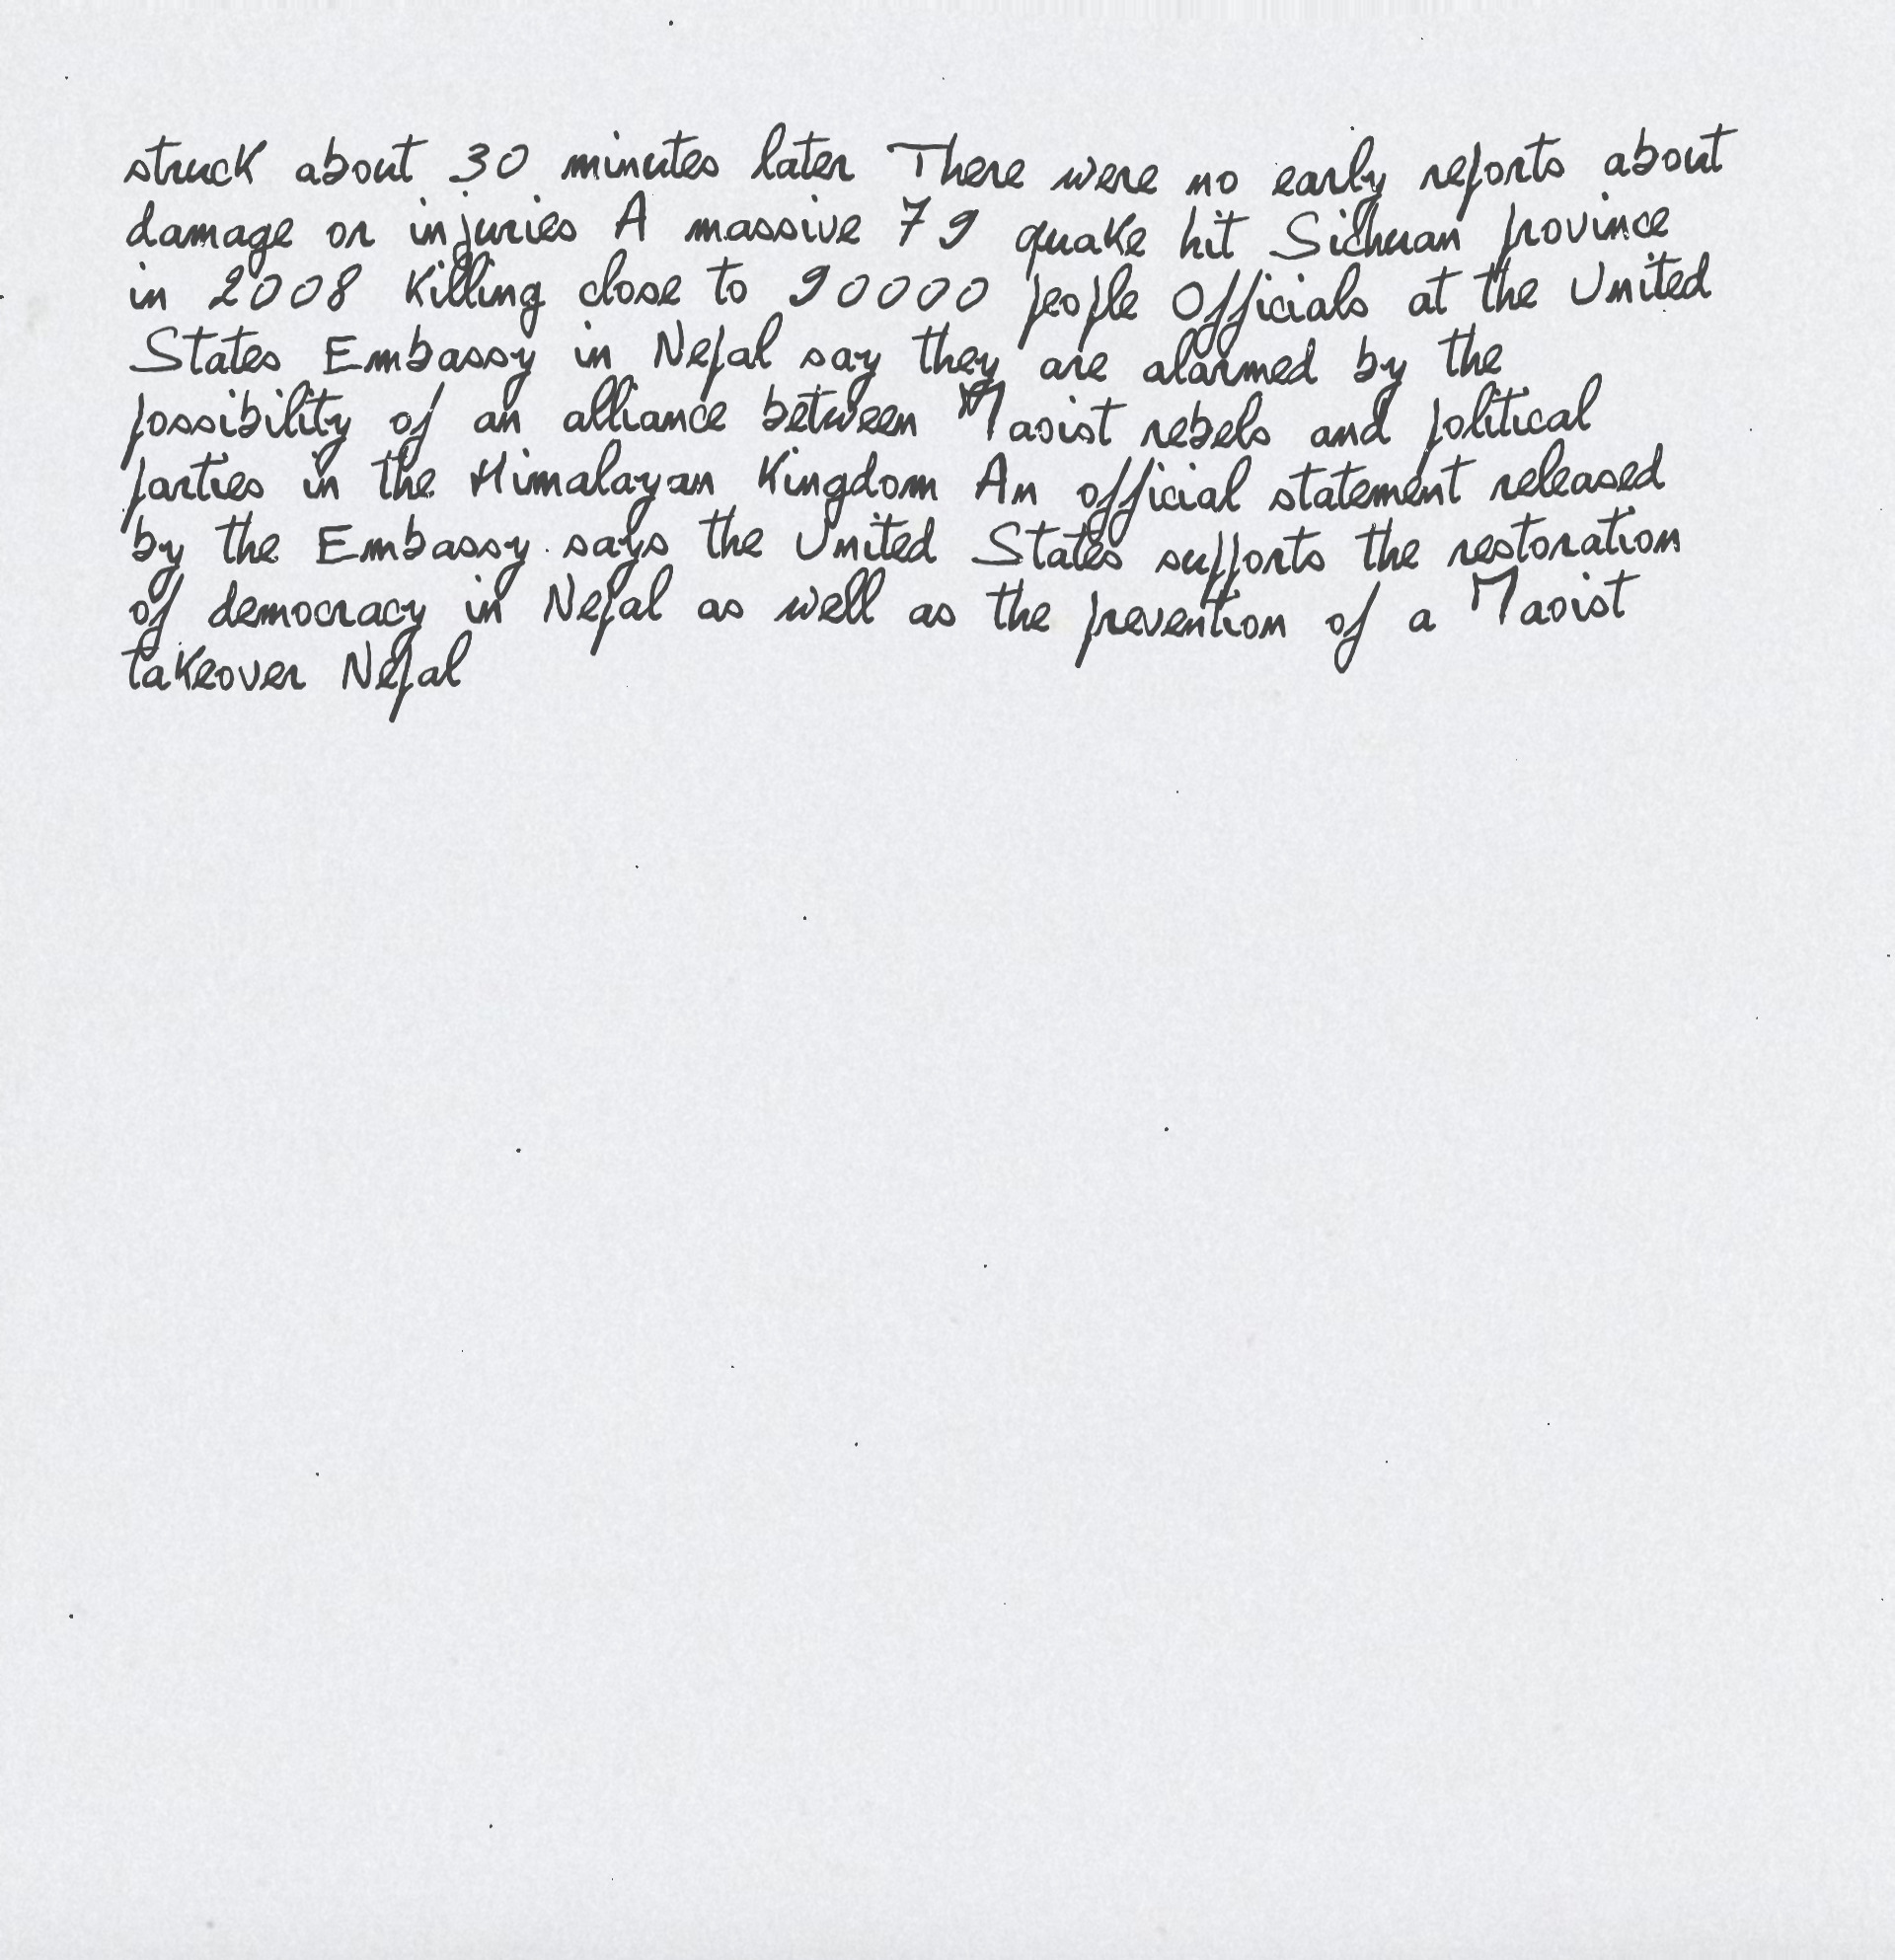 struck about 30 minutes later There were no early reports about
damage or injuries A massive 7 9 quake hit Sichuan province
in 2008 killing close to 90000 people Officials at the United
States Embassy in Nepal say they are alarmed by the
possibility of an alliance between Maoist rebels and political
parties in the Himalayan Kingdom An official statement released
by the Embassy says the United States supports the restoration
of democracy in Nepal as well as the prevention of a Maoist
takeover Nepal